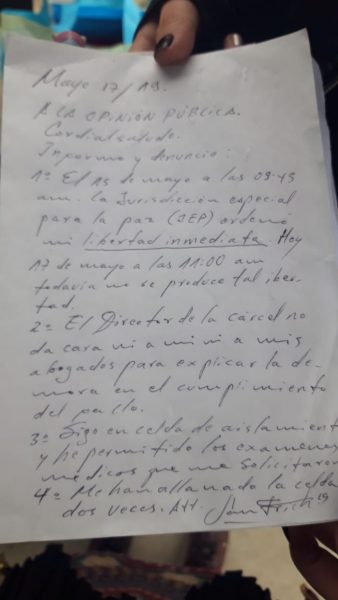 Mayo 17/19.
A LA OPINIÓN PÚBLICA.
Cordial saludo.
Informo y denuncio:
1º El 15 de mayo a las 08:45
am. la Jurisdicción especial
para la paz (JEP) ordenó
mi libertad inmediata. Hoy
17 de mayo a las 11:00 am
todavía no se produce tal liber-
tad.
2º El Director de la cárcel no
da cara ni a mi ni a mis
abogados para explicar la de-
mora en el cumplimiento
del fallo.
3º Sigo en celda de aislamient
y he permitido los exámenes
médicos que me solicitaron
4º Me han allanado la celda
dos veces. Att.